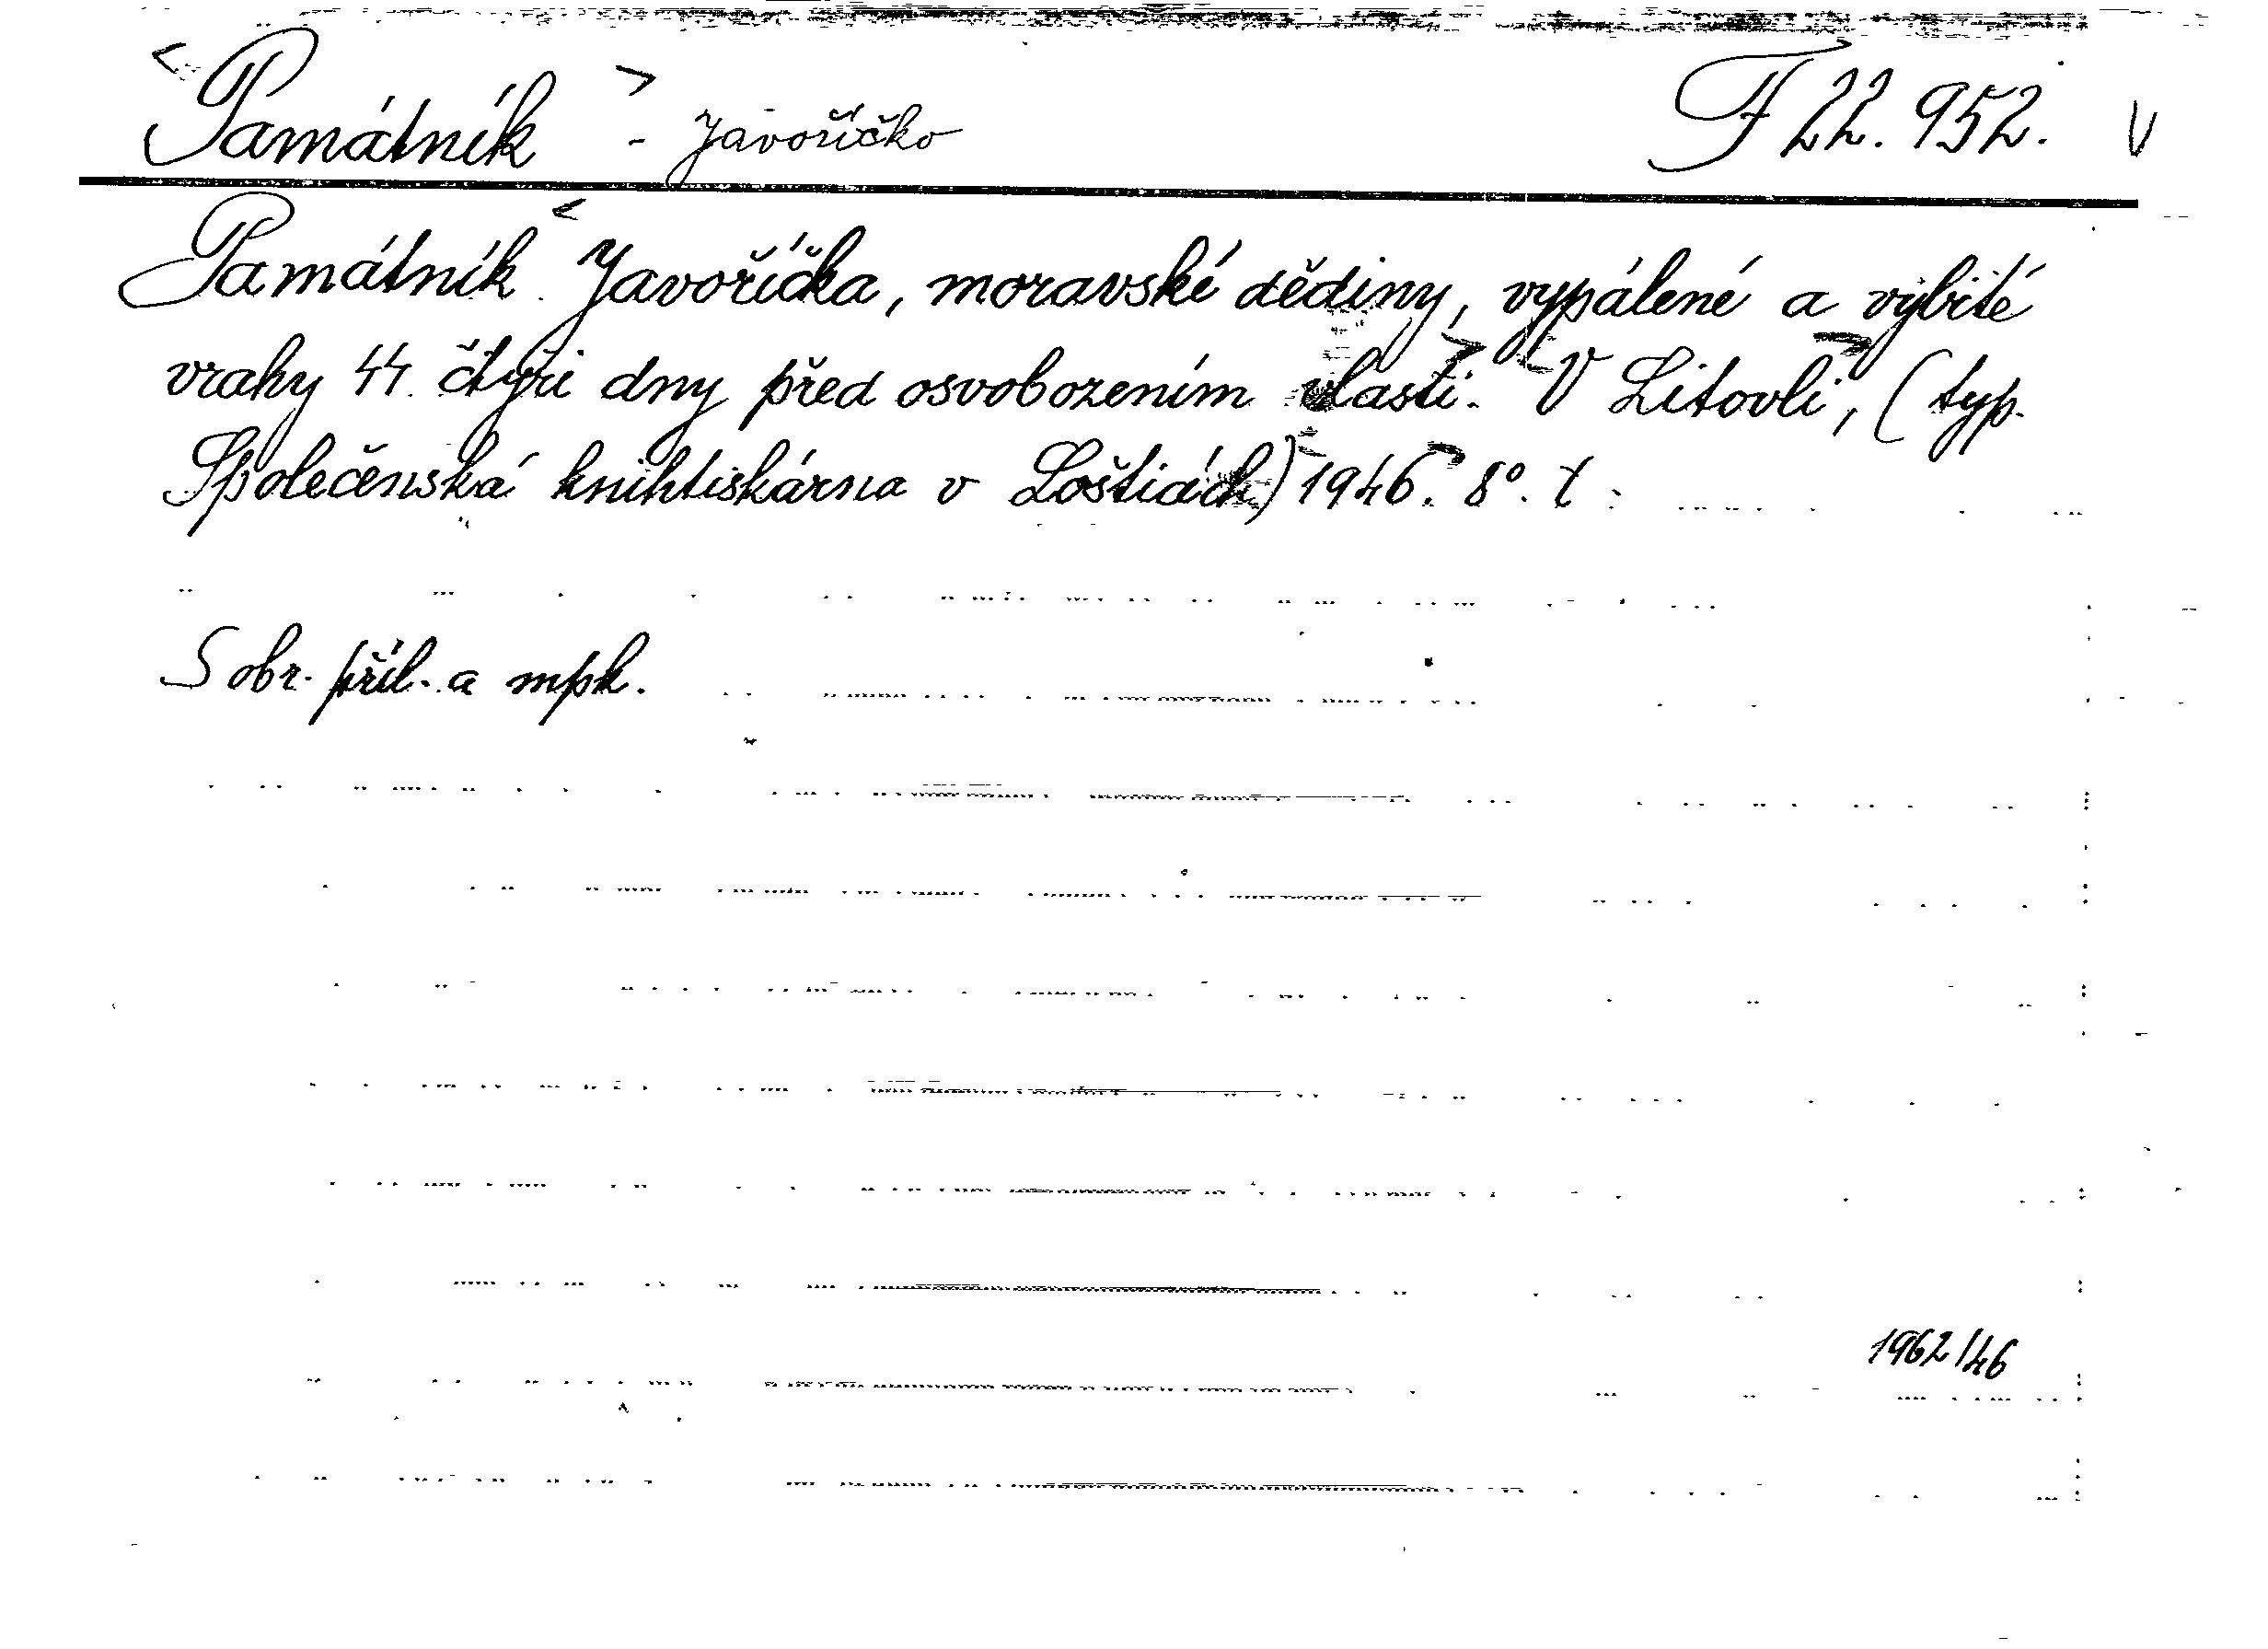 <Památník> - Javoříčko F 22.952. V
Památník <Javoříčka, moravské dědiny, vypálené a vybité
vrahy SS. čtyři dny před osvobozením vlasti.> <V Litovli>, (typ.
Společenská knihtiskárna v Lošticích) <1946>. 8°.
S obr. příl. a mpk.
1962/46